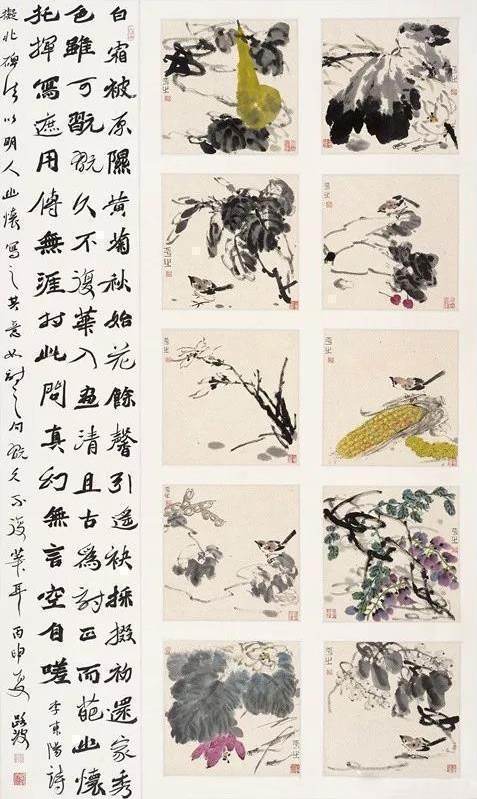 白霜被原隰黄菊秋始花餘馨引遥袂採掇初還家秀
色雖可翫翫久不復華入畫清且古為詩正而葩幽懷
托揮寫遮用傳無涯對此問真幻無言空自嗟 李東陽詩
擬北碑法以明人幽懷寫之其意如詩之句翫久不復華耳 丙申夏 路波